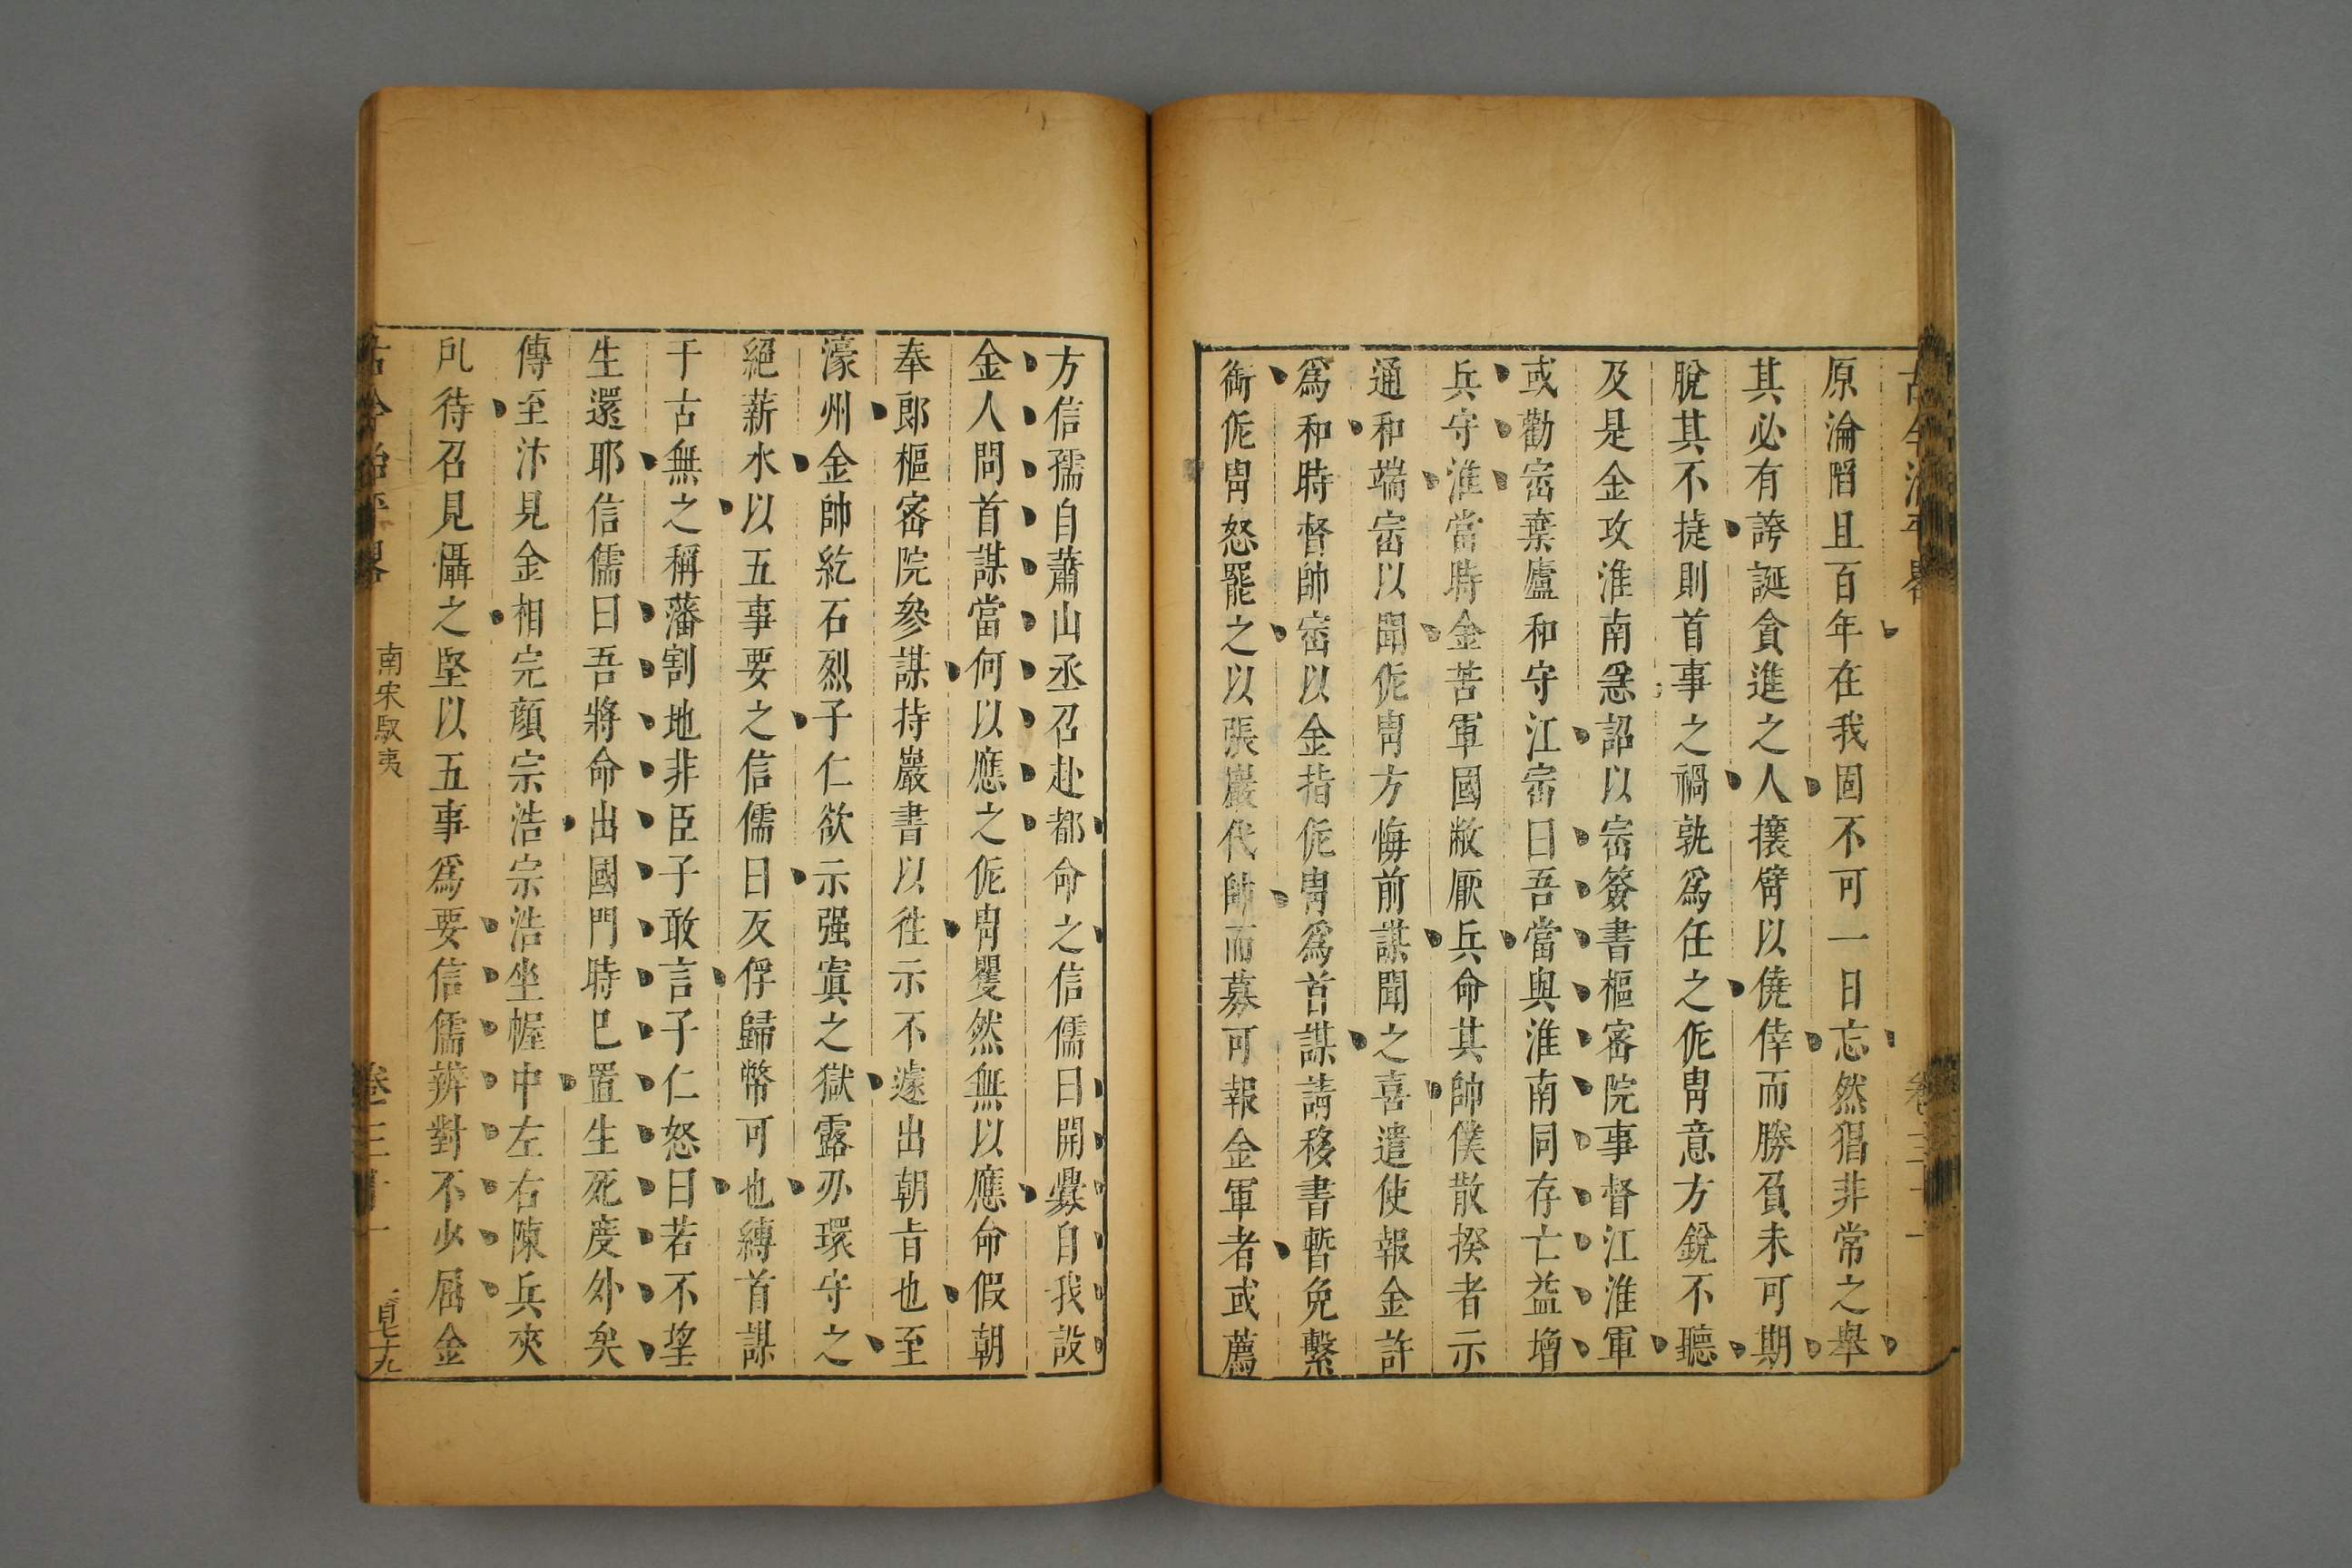 古今治平畧
卷三十一
原淪䧟且百年在我固不可一日忘然猖非常之舉
其必有誇誕貪進之人攘臂以僥倖而勝負未可期
脫其不捷則首事之禍孰爲任之侂胄意方銳不聽
及是金攻淮南急詔以密簽書樞密院事督江淮軍
或勸密棄廬和守江密曰吾當與淮南同存亡益增
兵守淮當時金苦軍國敝厭兵命其帥僕散揆者示
通和端密以聞侂胄方悔前謀聞之喜遣使報金許
爲和時督帥密以金指侂胄爲首謀請移書暫免繫
銜侂胄怒罷之以張巖代帥而募可報金軍者或薦
方信孺自蕭山丞召赴都命之信儒曰開釁自我設
金人問首謀當何以應之侂胄矍然無以應命假朝
奉郎樞密院參謀持巖書以徃示不遽出朝旨也至
濠州金帥紇石烈子仁欲示强寘之獄露刃環守之
絕薪水以五事要之信儒曰反俘歸幣可也縳首謀
于古無之稱藩割地非臣子敢言子仁怒曰若不望
生還耶信儒曰吾將命出國門時已置生死度外矣
傳至汴見金相完顏宗浩宗浩坐幄中左右陳兵夾
凡待召見懾之堅以五事爲要信儒辨對不少屈金
古今治平畧
南宋馭夷
卷三十一
一百七十九